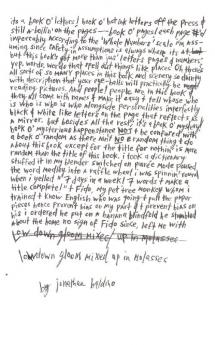 its a book o' letters! book o' hot ink letters off the Press &
still a'boilin' on the pages -- book o' pages! each page #'d
imperably According to the 'Whole Numbers' scale. i'm ass-
uming since safety in assumption is always where its at
but this book's got more than just 'letters pages & numbers',
yyp. words. words that tell all things like places. Oh there's
all sort of so many places in this book and scenery so thickly
with description that your eye-balls will practically be
reading pictures. And people! people are in this book &
they all come with names to make it easy t' tell whose who
is who is who is who alongside personalities inserted by
black & white like letters on the page that reflects as
a mirror. but besides all the rest, its a book o' mystery
book o' mysterious happenstance NOT t' be confused with
a book o' random as there not No a random thing t' do
about this book except for the title for nothin' is more
random than the title of this book. i took a dictionary
stuffed it in my blender switched on purée mode poured
the word medley into a raffle wheel i was spinnin' round
when i yelled "7 days in a week! 7 words t' make a
title complete!" & Fido, my pet tree monkey whom i
trained t' know English who was going t' pull the paper
pieces hence prevent bias on my part & t' prevent bias on
his i ordered he put on a banana blindfold he stumbled
about the home no sign of Fido since. left me with
Low down gloom mixed up in Molasses
Lowdown gloom mixed up in molasses
by jonathan